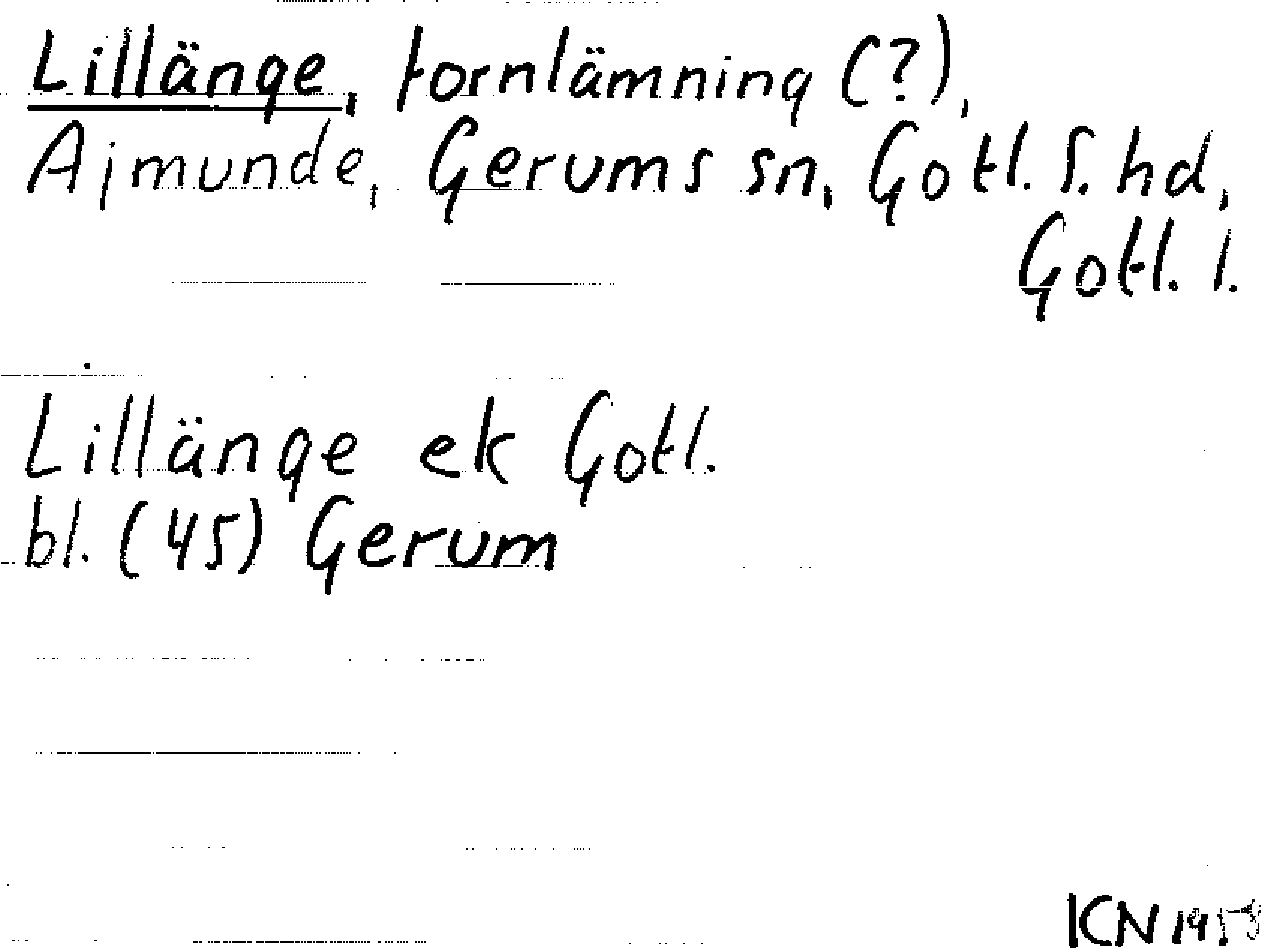 Lillänge, fornlämning (?),
Ajmunde, Gerums sn, Gotl. S. hd,
Gotl. l.
Lillänge ek Gotl.
bl. (45) Gerum
ICN